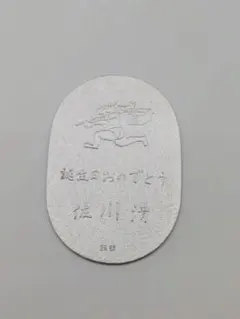 誕生日おめでとう
佐川清
純銀